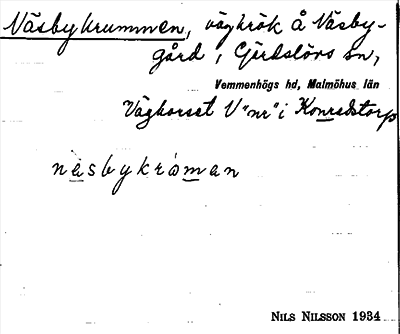 Näsbykrummen, vägkrök å Näsby-
gård, Gärdslövs sn,
Vemmenhögs hd, Malmöhus län
Vägkorset V "nr" i Konradstorp
näsbykråman
NILS NILSSON 1934